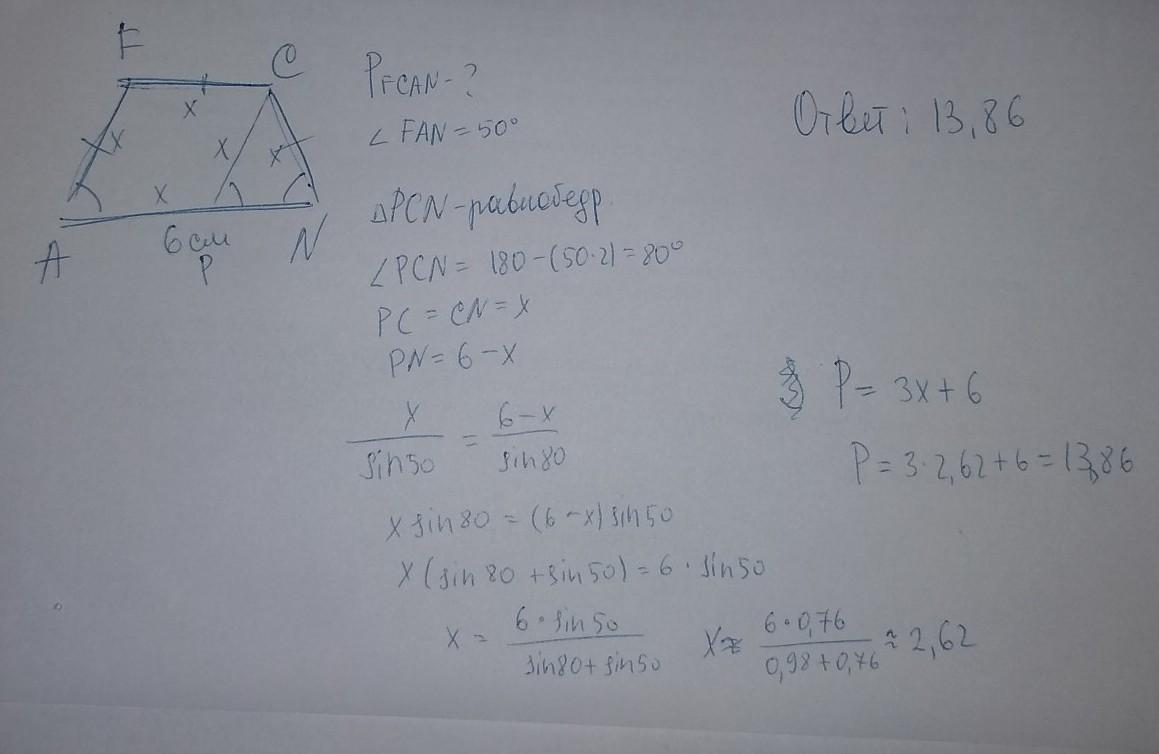 F
C
x
x
x
x
x
A
6 см
P
N
P FCAN - ?
∠ FAN = 50°
△PCN - равнобедр.
∠PCN = 180 - (50·2) = 80°
PC = CN = x
PN = 6 - x
x / sin50 = 6-x / sin80
x sin80 = (6-x) sin50
x (sin80 + sin50) = 6 · sin50
x = 6·sin50 / sin80 + sin50
x ≈ 6·0,76 / 0,98+0,76 ≈ 2,62
Ответ: 13,86
P = 3x + 6
P = 3·2,62+6 = 13,86